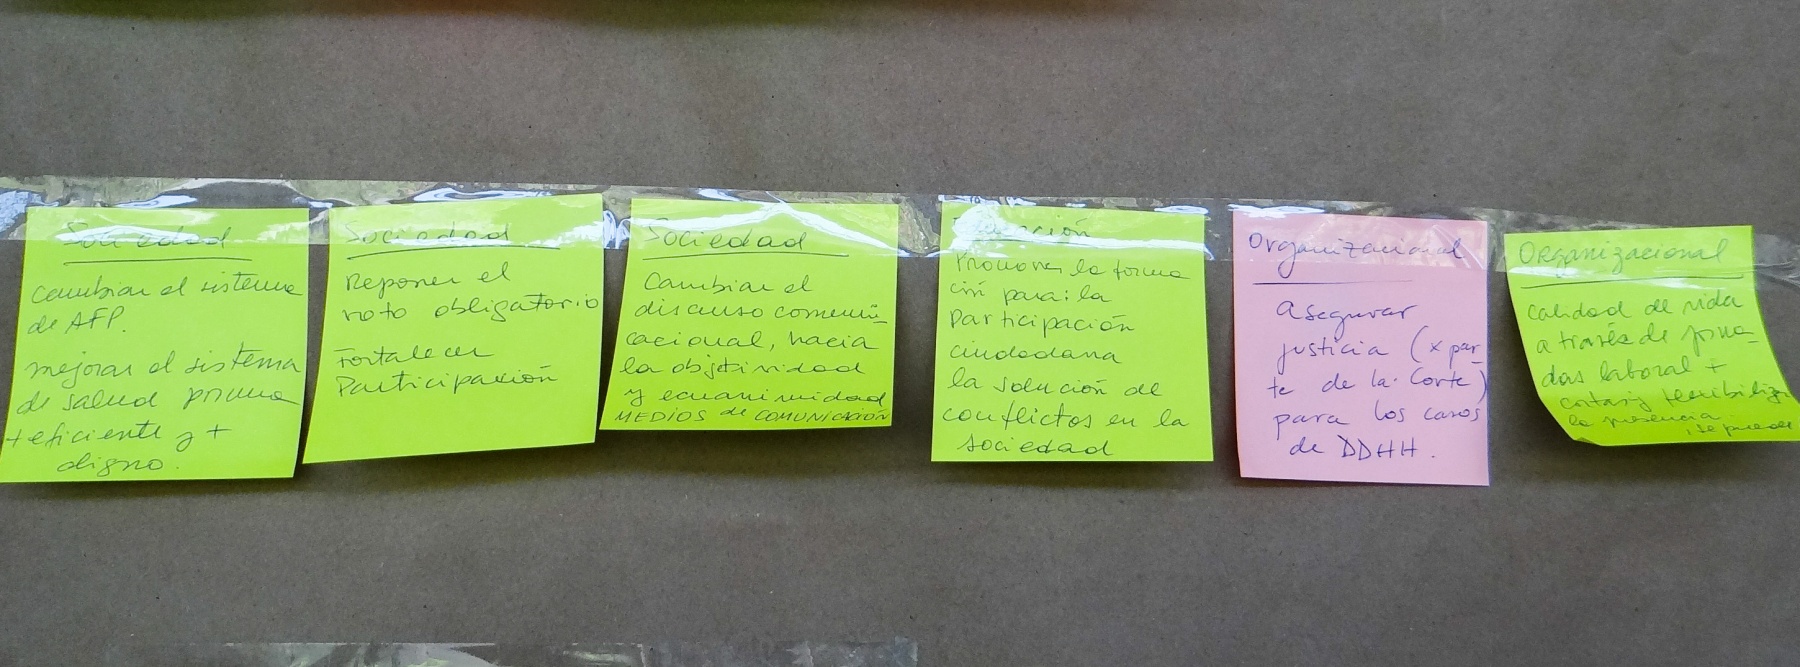 Sociedad
cambiar el sistema
de AFP.
mejorar el sistema
de salud
+ eficiente y +
digno.
Sociedad
Reponer el
voto obligatorio
Fortalecer
Participación
Sociedad
Cambiar el
discurso comuni
cacional, hacia
la objetividad
y ecuanimidad
MEDIOS de COMUNICACIÓN
Promover la forma
ción para: la
Participación
ciudadana
la solución de
conflictos en la
sociedad
Organizacional
Asegurar
justicia (x par
te de la Corte)
para los casos
de DDHH.
Organizacional
calidad de vida
a través de jorna
das laboral +
cortas y flexibiliza
la presencia
, se puede